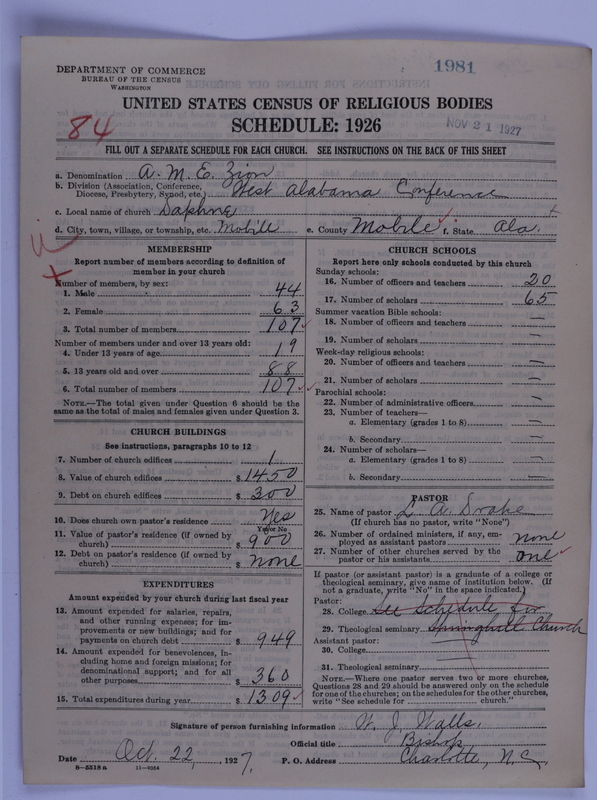 1981
DEPARTMENT OF COMMERCE
BUREAU OF THE CENSUS
WASHINGTON
UNITED STATES CENSUS OF RELIGIOUS BODIES
84
SCHEDULE: 1926
NOV 21 1927
FILL OUT A SEPARATE SCHEDULE FOR EACH CHURCH. SEE INSTRUCTIONS ON THE BACK OF THIS SHEET
a. Denomination A. M. E. Zion
b. Division (Association, Conference, Diocese, Presbytery, Synod, etc.) West Alabama Conference
c. Local name of church Daphne
d. City, town, village, or township, etc. Mobile e. County Mobile f. State Ala.
MEMBERSHIP
Report number of members according to definition of
member in your church
Number of members, by sex:
1. Male 44
2. Female 63
3. Total number of members 107
Number of members under and over 13 years old:
4. Under 13 years of age 19
5. 13 years old and over 88
6. Total number of members 107
NOTE.—The total given under Question 6 should be
same as the total of males and females given under Question 3.
CHURCH BUILDINGS
See instructions, paragraphs 10 to 12
7. Number of church edifices 1
8. Value of church edifices $ 1450
9. Debt on church edifices $ 300
10. Does church own pastor's residence Yes
Yes or No
11. Value of pastor's residence (if owned by
church) $ 900
12. Debt on pastor's residence (if owned by
church) $ none
EXPENDITURES
Amount expended by your church during last fiscal year
13. Amount expended for salaries, repairs,
and other running expenses; for im-
provements or new buildings; and for
payments on church debt $ 949
14. Amount expended for benevolences, in-
cluding home and foreign missions; for
denominational support; and for all
other purposes $ 360
15. Total expenditures during year $ 1309
CHURCH SCHOOLS
Report here only schools conducted by this church
Sunday schools:
16. Number of officers and teachers 20
17. Number of scholars 65
Summer vacation Bible schools:
18. Number of officers and teachers —
19. Number of scholars —
Week-day religious schools:
20. Number of officers and teachers —
21. Number of scholars —
Parochial schools:
22. Number of administrative officers —
23. Number of teachers—
a. Elementary (grades 1 to 8) —
b. Secondary —
24. Number of scholars—
a. Elementary (grades 1 to 8) —
b. Secondary —
PASTOR
25. Name of pastor L. A. Drake
(If church has no pastor, write "None")
26. Number of ordained ministers, if any, em-
ployed as assistant pastors none
27. Number of other churches served by the
pastor or his assistants one
If pastor (or assistant pastor) is a graduate of a college or
theological seminary, give name of institution below. (If
not a graduate, write "No" in the space indicated.)
Pastor:
28. College See Schedule for
29. Theological seminary Springhill Church
Assistant pastor:
30. College
31. Theological seminary
NOTE.—Where one pastor serves two or more churches,
Questions 28 and 29 should be answered only on the schedule
for one of the churches; on the schedules for the other churches,
write "See schedule for church."
Signature of person furnishing information W. J. Walls.
Official title Bishop
Date Oct. 22, 1927. P. O. Address Charlotte, N. C.
8—5218 a 11—9354